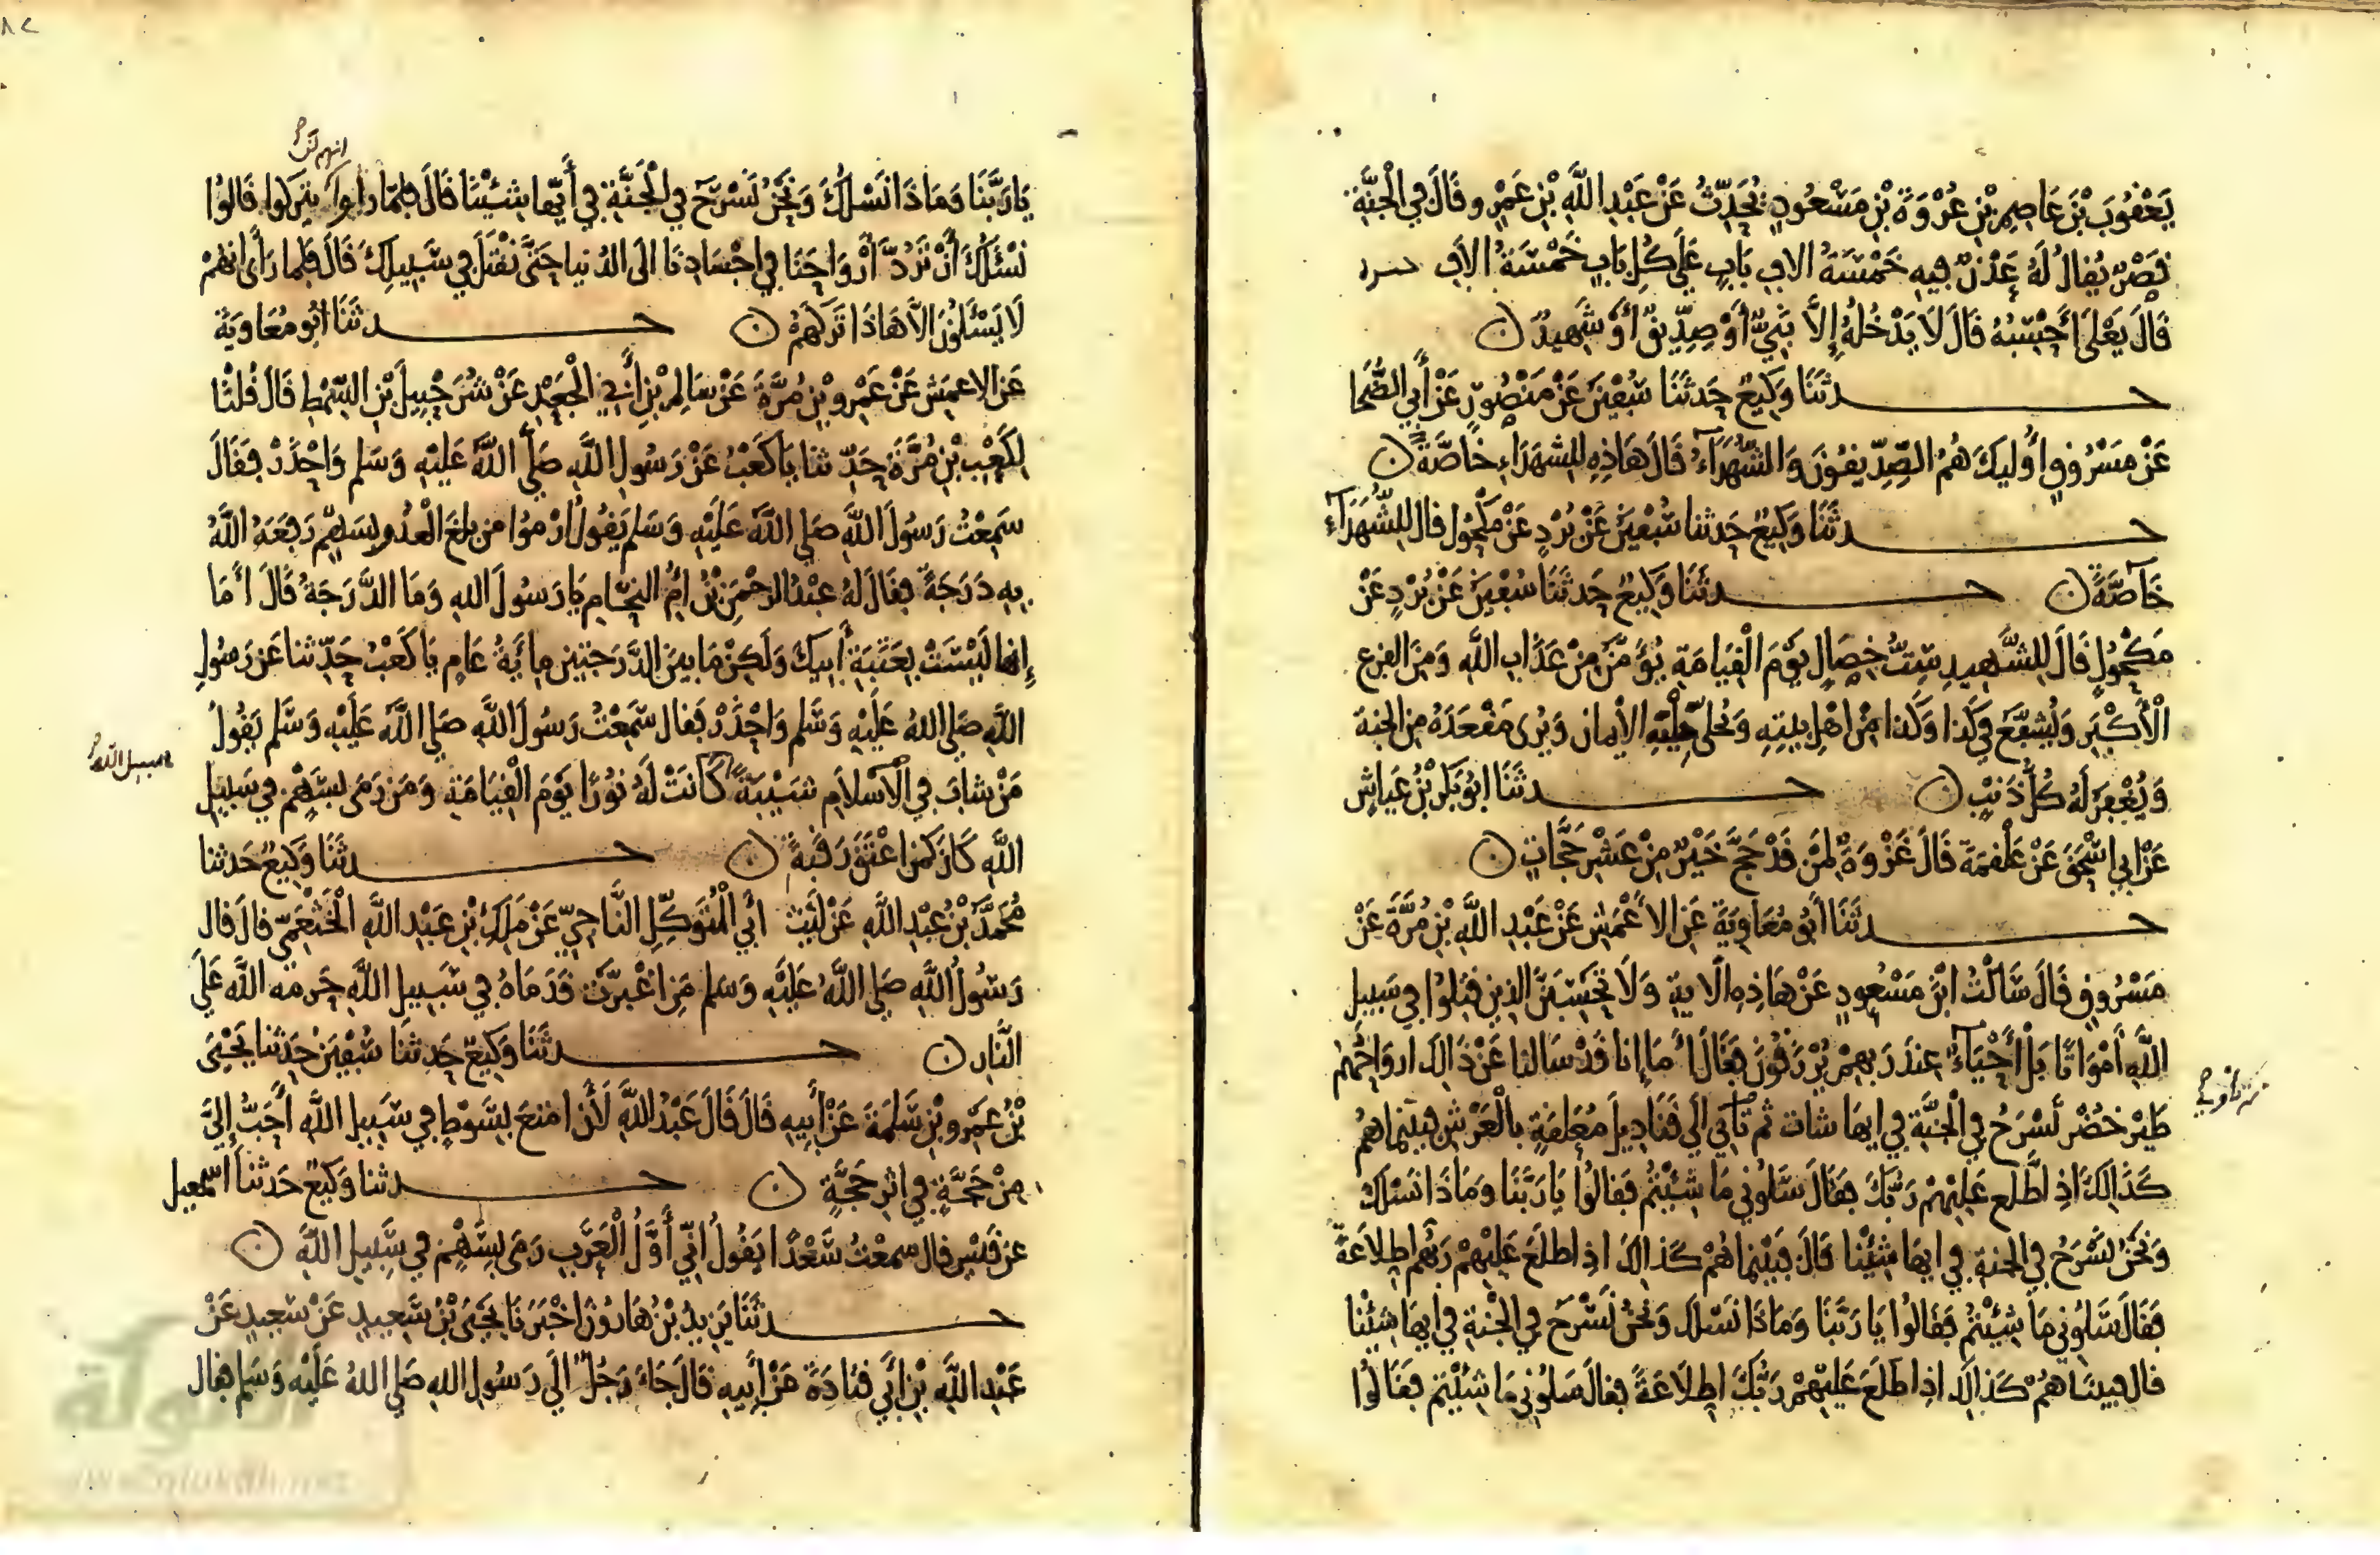 يَعْقُوبَ بْنَ عَاصِمِ بْنِ عُرْوَةَ بْنِ مَسْعُودٍ يُحَدِّثُ عَنْ عَبْدِ اللَّهِ بْنِ عَمْرٍو قَالَ فِي الْجَنَّةِ
قَصْرٌ يُقَالُ لَهُ عَدْنٌ فِيهِ خَمْسَةُ الافِ بَابٍ عَلَى كُلِّ بَابٍ خَمْسَةُ الافِ
قَالَ يَعْلَى أَحْسِبُهُ قَالَ لَا يَدْخُلُهُ إِلَّا نَبِيٌّ أَوْ صِدِّيقٌ أَوْ شَهِيدٌ
حدثَنَا وَكِيعٌ حَدثَنَا سُفْيَنُ عَنْ مَنْصُورٍ عَنْ أَبِي الضُّحَا
عَنْ مَسْرُوقٍ أُولَيِكَ هُمُ الصِّدِّيقُونَ وَالشُّهَدَآءُ قَالَ هَاذِهِ لِلشهَدَاءِ خَاصَّةً
حدثَنَا وَكِيعٌ حَدثنا سُفْيَنُ عَنْ بُرْدٍ عَنْ مَكْحُولٍ قال لِلشُّهَدَآءِ
خَآصَّةً حدثَنَا وَكِيعٌ حَدثَنَا سُفْيَنُ عَنْ بُرْدٍ عَنْ
مَكْحُولٍ قَالَ لِلشَّهِيدِ سِتُّ خِصَالٍ يَوْمَ الْقِيَامَةِ يُؤَمَّنُ مِنْ عَذَابِ اللَّهِ وَمِنَ الفزع
الْأَكْبَرِ وَيُشَفَّعُ فِي كَذَا وَكَذا مِنْ اهْلِ بيتِهِ وَيُحَلَّى حِلْيَةِ الْإيمان وَيُرى مَقْعَدَهُ مِنَ الجنة
وَيُغْفِرُ لَهُ كُلُّ ذَنْبٍ حدثَنَا ابُو بَكْرِ بْنُ عَيَّاشٍ
عَنْ ابِي اسْحَقَ عَنْ عَلْقَمَةَ قَالَ غَزْوَةٌ لِمَن قَدْ حَجَّ خَيْرٌ مِنْ عَشْرِ حَجَّاتٍ
حدثَنَا أَبُو مُعَاوِيَةَ عَنِ الاعْمَشِ عَنْ عَبْدِ اللَّهِ بْنِ مُرَّةَ عَنْ
مَسْرُوقٍ قَالَ سَالْتُ ابْنَ مَسْعُودٍ عَنْ هَاذِهِ الْايَةِ وَلَا تَحْسَبَنَّ الذِينَ قُتِلُوا فِي سَبِيلِ
اللَّهِ أَمْوَاتًا بَلْ أَحْيَآءٌ عِندَ رَبهِمْ يُرْزَقُونَ فَقَالَ أَمَا إنا قَدْ سَالنا عَنْ ذَالِكَ ارواحُهُمْ
طَيْرٍ خُضْرٍ تَسْرَحُ فِي الْجَنَّةِ فِي ايهَا شاتْ ثم تَأْتِي الَى قَنَادِيلَ مُعَلقَةٍ بالْعَرْشِ فبينما هُمْ
كَذَالِكَ اذِ اطَّلَعَ عَلَيْهِمْ رَبُّكَ فقَالَ سَلُونِي مَا شِئْتُمْ فَقالُوا يَا رَبَّنَا وَمَاذَا نَسْئلُكَ
وَنَحْنُ نَسْرَحُ فِي الجنةِ فِي ايهَا شِئْنا قَالَ فَبَيْنما هُمْ كَذَالِكَ اذِ اطلعَ عَلَيْهِمْ رَبُّهم اطِلاعَةً
فَقالَ سَلُونِي مَا شِئْتُمْ فَقَالُوا يَا رَبَّنَا وَمَاذَا نَسْئلُكَ وَنَحْنُ نَسْرَحُ فِي الْجَنةِ فِي ايهَا شِئْنا
قال فبينا هُمْ كَذَالِكَ اذِ اطَّلَعَ عَلَيْهِمْ رَبُّكَ اطِلَاعَةً فقالَ سَلُونِي مَا شِئْتُمْ فَقَالُوا
انهم لن
يَا رَبَّنَا وَمَاذَا نَسْئلُكَ وَنَحْنُ نَسْرَحُ فِي الْجَنَّةِ فِي أَيِّهَا شِئْنَا قَالَ فلمّا راوا يتركوا قَالُوا
نَسْئَلُكَ أَنْ تَرُدَّ أَرْوَاحَنَا فِي اجْسَادِنَا الَى الدُّنيا حَتَّى نُقْتَلَ فِي سَبِيلِكَ قَالَ فَلما رَأى انهُمْ
لَا يَسْئَلُونَ الَّا هَاذَا تَرَكَهُمْ حدثَنَا ابُو مُعَاوِيَةَ
عَنِ الاعمَشِ عَنْ عَمْرِو بْنِ مُرَّةَ عَنْ سَالِمِ بْنِ أَبِي الْجَعْدِ عَنْ شُرَحْبِيلَ بْنِ السِّمْطِ قَالَ قُلْنَا
لِكَعْبِ بْنِ مُرَّةَ حَدِّثنا يَا كَعْبُ عَنْ رَسُولِ اللَّهِ صَلَّى اللَّهُ عَلَيْهِ وَسَلم وَاحْذَرْ فَقَالَ
سَمِعْتُ رَسُولَ اللَّهِ صَلى اللَّهُ عَلَيْهِ وَسَلم يَقُولُ ارْمُوا من بلغَ الْعدُو بِسَهْمٍ رَفَعَهُ اللَّهُ
بِهِ دَرَجَةً فقَالَ لهُ عبْدُ الرحْمَنِ بْنُ امِّ النحّامِ يَا رَسُولَ اللهِ وَمَا الدَّرَجَةُ قَالَ أَمَا
إِنها لَيْسَتْ بِعَتَبَةِ أَبِيكَ وَلَكِنْ مَا بينَ الدَّرَجتين مِايَةُ عَامٍ يَا كَعْبُ حَدِّثنا عَن رَسُولِ
اللَّهِ صَلى اللهُ عَلَيْهِ وَسَلم وَاحْذَرْ فَقال سَمِعْتُ رَسُولَ اللَّهِ صَلى اللَّهُ عَلَيْهِ وَسَلم يَقُولُ
مَنْ شابَ فِي الْاسْلَامِ شَيْبَةً كَانَتْ لَهُ نُورًا يَوْمَ الْقِيَامَةِ وَمَن رَمَى بِسَهْمٍ فِي سَبِيلِ
سبيل الله
اللَّهِ كَانَ كَمن اعْتَقَ رَقبَةً حدثَنَا وَكِيعٌ حَدثنا
مُحَمَّدُ بْنُ عَبْدِ اللَّهِ عَنْ لَيْثٍ أبي الْمُتَوَكِّلِ النَّاجِيِّ عَنْ مَلِكِ بْنِ عَبْدِ اللَّهِ الْخَثْعَمِيِّ قالَ قال
رَسُولُ اللَّهِ صَلى اللَّهُ عَلَيْهِ وَسَلم مَنِ اغْبَرَّتْ قَدَمَاهُ فِي سَبِيلِ اللَّهِ حَرمه اللَّهُ عَلَى
النَّارِ حدثَنَا وَكِيعٌ حَدثنَا سُفْيَنُ حَدثنا يَحْيَى
بْنُ عَمْرِو بْنِ سَلِمَةَ عَنْ أَبِيهِ قَالَ قَالَ عَبْدُ اللَّهِ لَأَنْ امَتعَ بِسَوْطٍ فِي سَبِيلِ اللَّهِ أَحَبُّ إِلَيَّ
مِنْ حَجَّةٍ فِي اثرِ حَجَّةٍ حدثنا وَكِيعٌ حَدثنَا اسْمعِيل
عن قَيْسٍ قال سمعْتُ سَعْدًا يَقُولُ انِّي أَوَّلُ الْعَرَبِ رَمَى بِسَهْمٍ فِي سَبِيلِ اللَّهِ
حدثَنَا يَزِيدُ بْنُ هَارُونَ اخْبَرَنَا يَحْيَى بْنُ سَعِيدٍ عَنْ سَعِيدٍ عَنْ
عَبْدِ اللَّهِ بْنِ أَبِي قتادَةَ عَنْ أَبِيهِ قَالَ جَاءَ رَجُلٌ الَى رَسُولِ اللهِ صَلى اللهُ عَلَيْهِ وَسَلم فقال
الألوكة
www.alukah.net